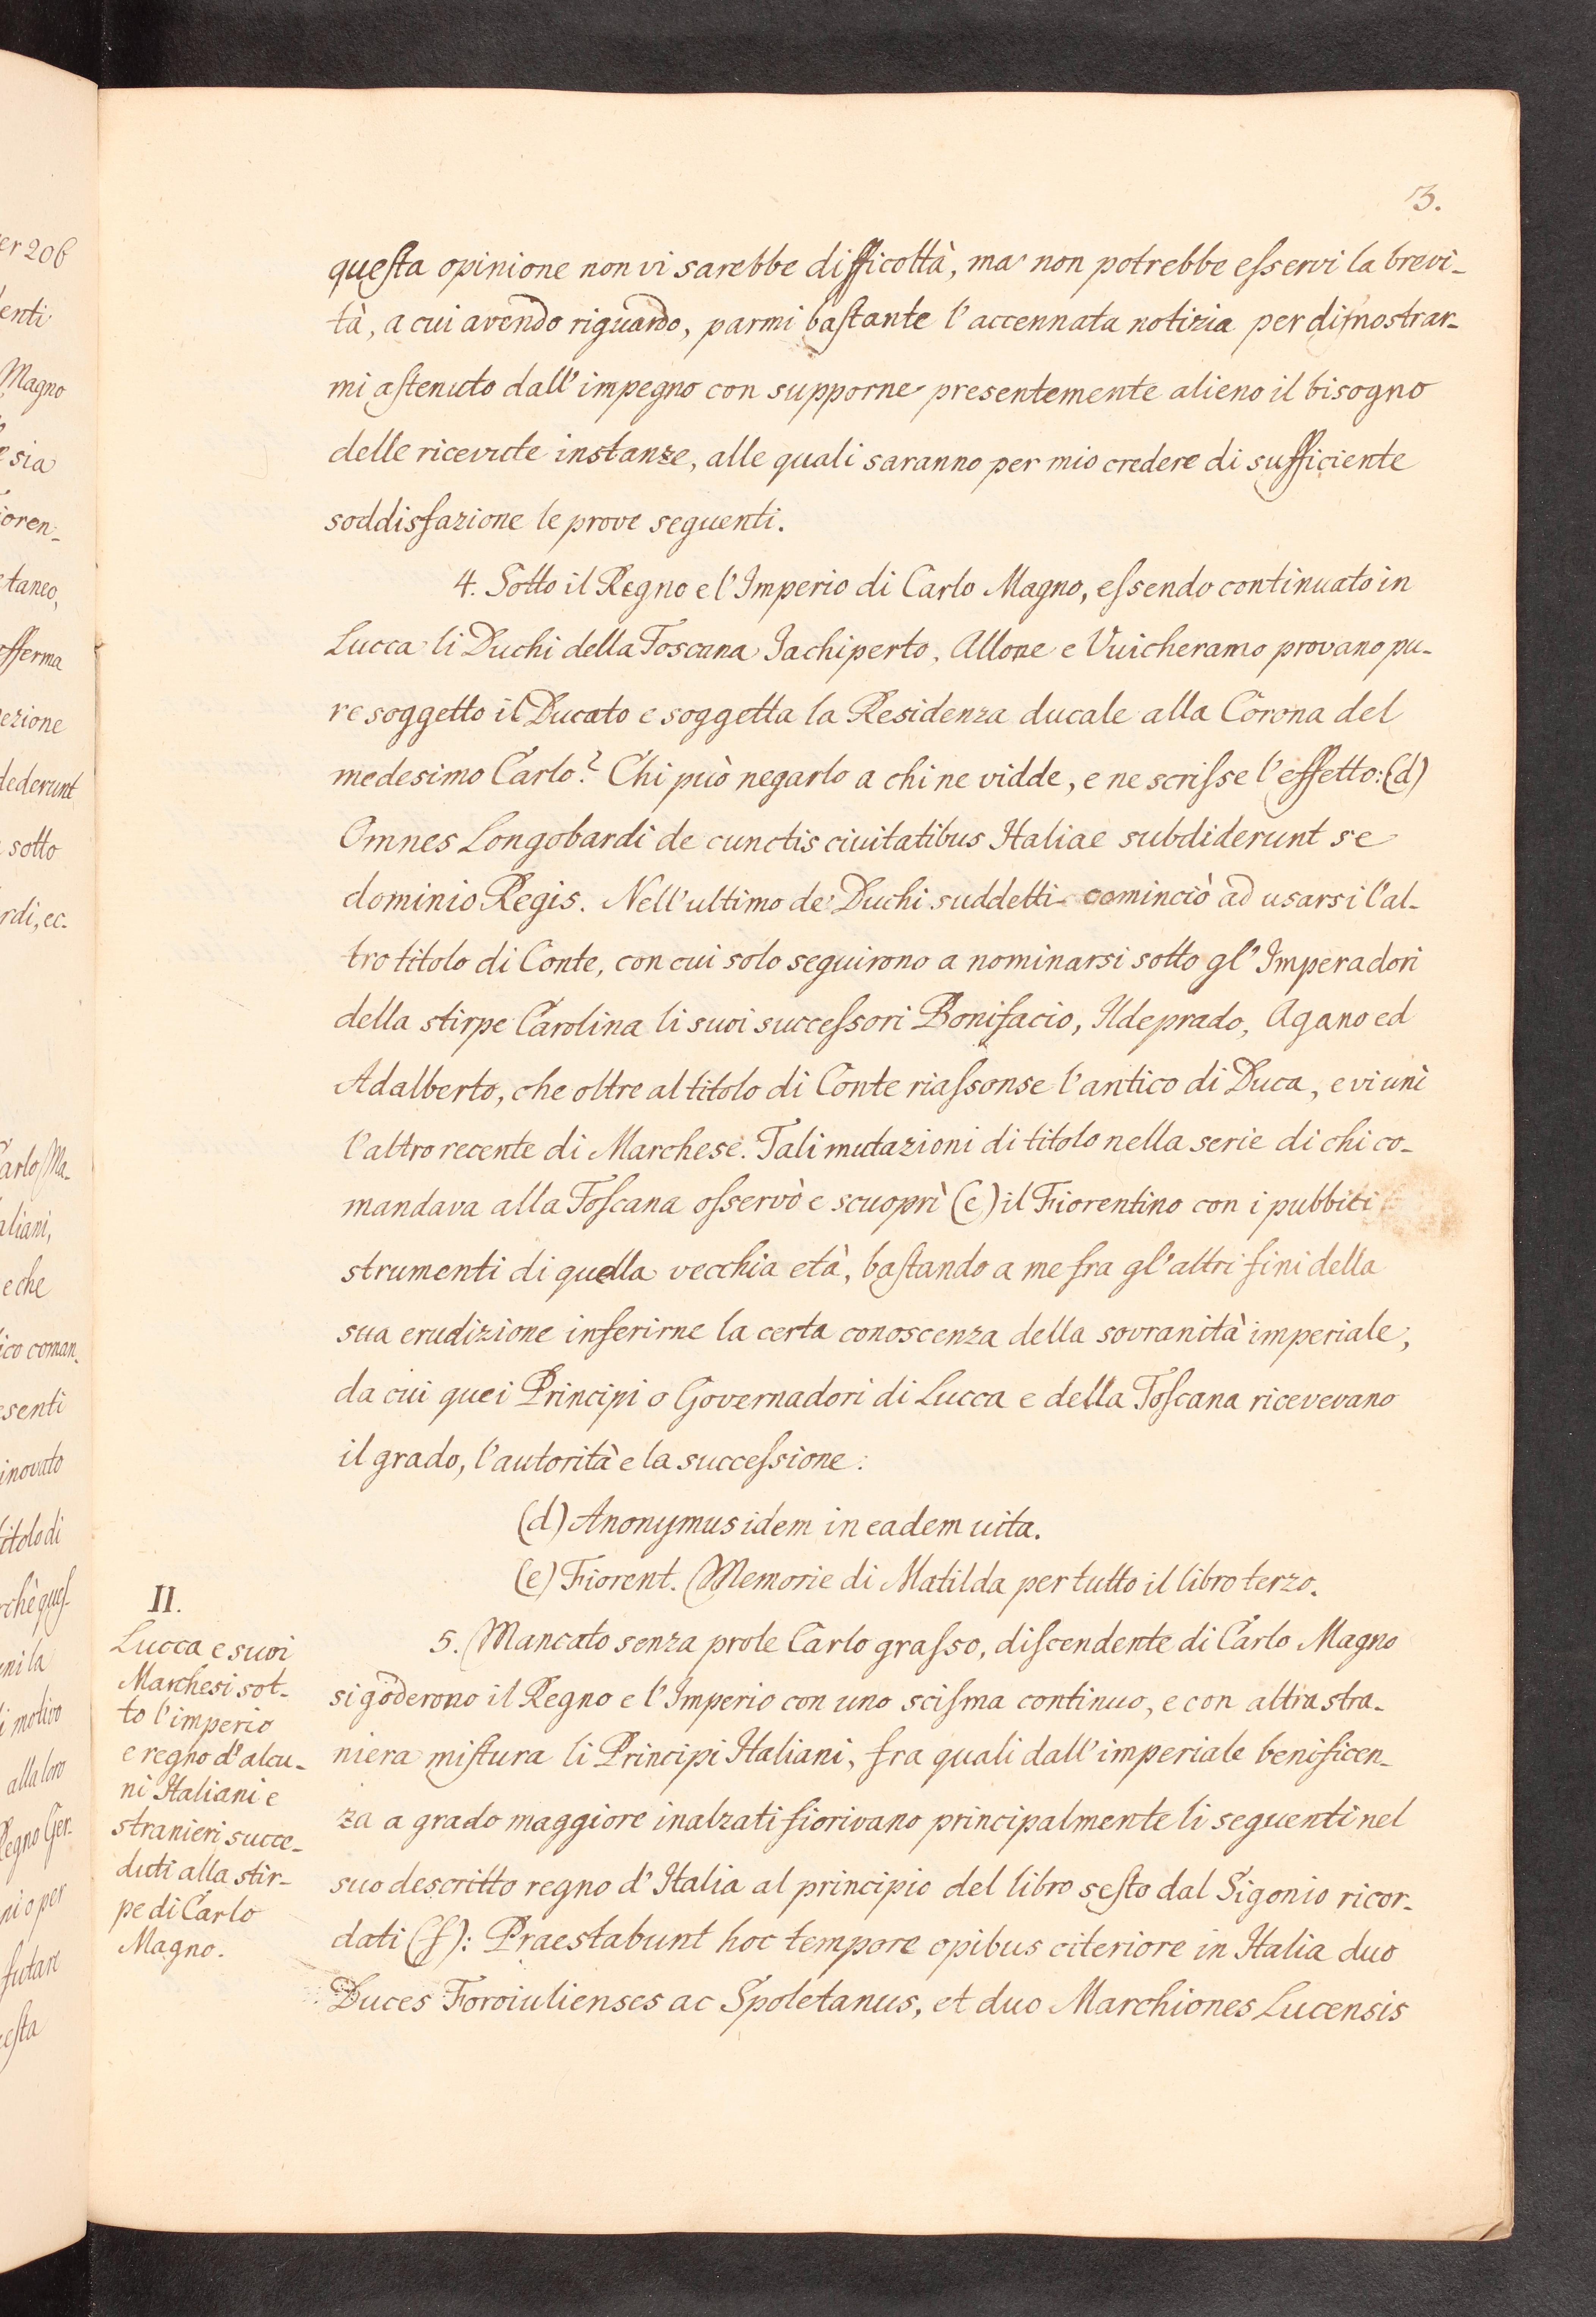 3.
questa opinione non vi sarebbe difficoltà, ma non potrebbe esservi la brevi-
tà, a cui avendo riguardo, parmi bastante l'accennata notizia per dimostrar-
mi astenuto dall'impegno con supporne presentemente alieno il bisogno
delle ricevute instanze, alle quali saranno per mio credere di sufficiente
soddisfazione le prove seguenti.
4. Sotto il Regno e l'Imperio di Carlo Magno, essendo continuato in
Lucca li Duchi della Toscana Jachiperto, Allone e Vuicheramo provano pu-
re soggetto il Ducato e soggetta la Residenza ducale alla Corona del
medesimo Carlo? Chi può negarlo a chi ne vidde, e ne scrisse l'effetto: (d)
Omnes Longobardi de cunctis ciuitatibus Italiae subdiderunt se
dominio Regis. Nell'ultimo de' Duchi suddetti cominciò ad usarsi l'al-
tro titolo di Conte, con cui solo seguirono a nominarsi sotto gl'Imperadori
della stirpe Carolina li suoi successori Bonifacio, Ildeprado, Agano ed
Adalberto, che oltre al titolo di Conte riassonse l'antico di Duca, e vi unì
l'altro recente di Marchese. Tali mutazioni di titolo nella serie di chi co-
mandava alla Toscana osservò e scuoprì (e) il Fiorentino con i pubbici
strumenti di quella vecchia età, bastando a me fra gl'altri fini della
sua erudizione inferirne la certa conoscenza della sovranità imperiale,
da cui quei Principi o Governadori di Lucca e della Toscana ricevevano
il grado, l'autorità e la successione.
(d) Anonymus idem in eadem uita.
(e) Fiorent. Memorie di Matilda per tutto il libro terzo.
II.
Lucca e suoi
Marchesi sot-
to l'imperio
e regno d'alcu-
ni Italiani e
stranieri succe-
duti alla stir-
pe di Carlo
Magno.
5. Mancato senza prole Carlo grasso, discendente di Carlo Magno
si goderono il Regno e l'Imperio con uno scisma continuo, e con altra stra-
niera mistura li Principi Italiani, fra quali dall'imperiale benificen-
za a grado maggiore inalzati fiorivano principalmente li seguenti nel
suo descritto regno d'Italia al principio del libro sesto dal Sigonio ricor-
dati (f): Praestabunt hoc tempore opibus citeriore in Italia duo
Duces Foroiulienses ac Spoletanus, et duo Marchiones Lucensis